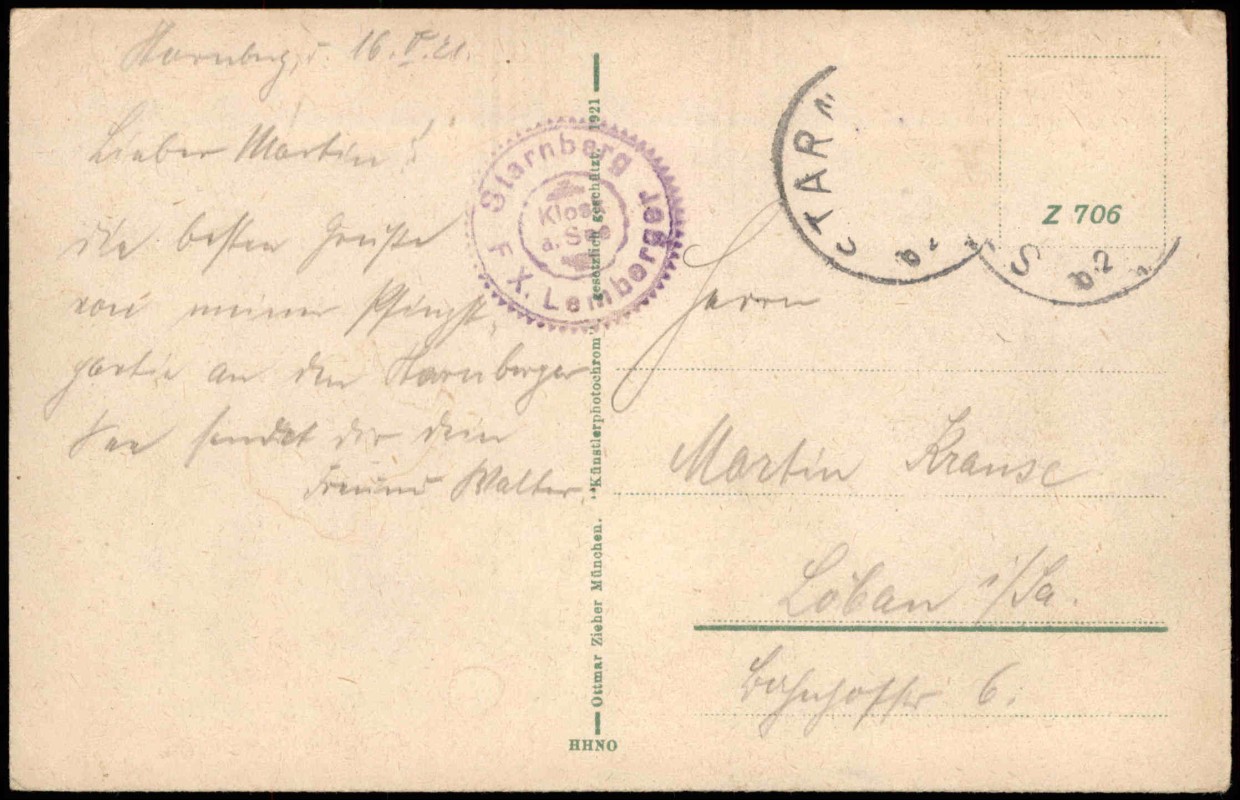 Starnberg, d. 16.V.21.
Lieber Martin!
die besten Grüße
von meiner Pfingst-
partie an den Starnberger
See sendet dir dein
Freund Walter.
Starnberg Jäger
F. X. Lemberg
Klos
a. See
"Künstlerphotochrom" gesetzlich geschützt. 1921
Ottmar Zieher München.
HHNO
STARN
S
b2
Z 706
Herrn
Martin Krause
Löbau i/Sa.
Bahnhofstr 6.